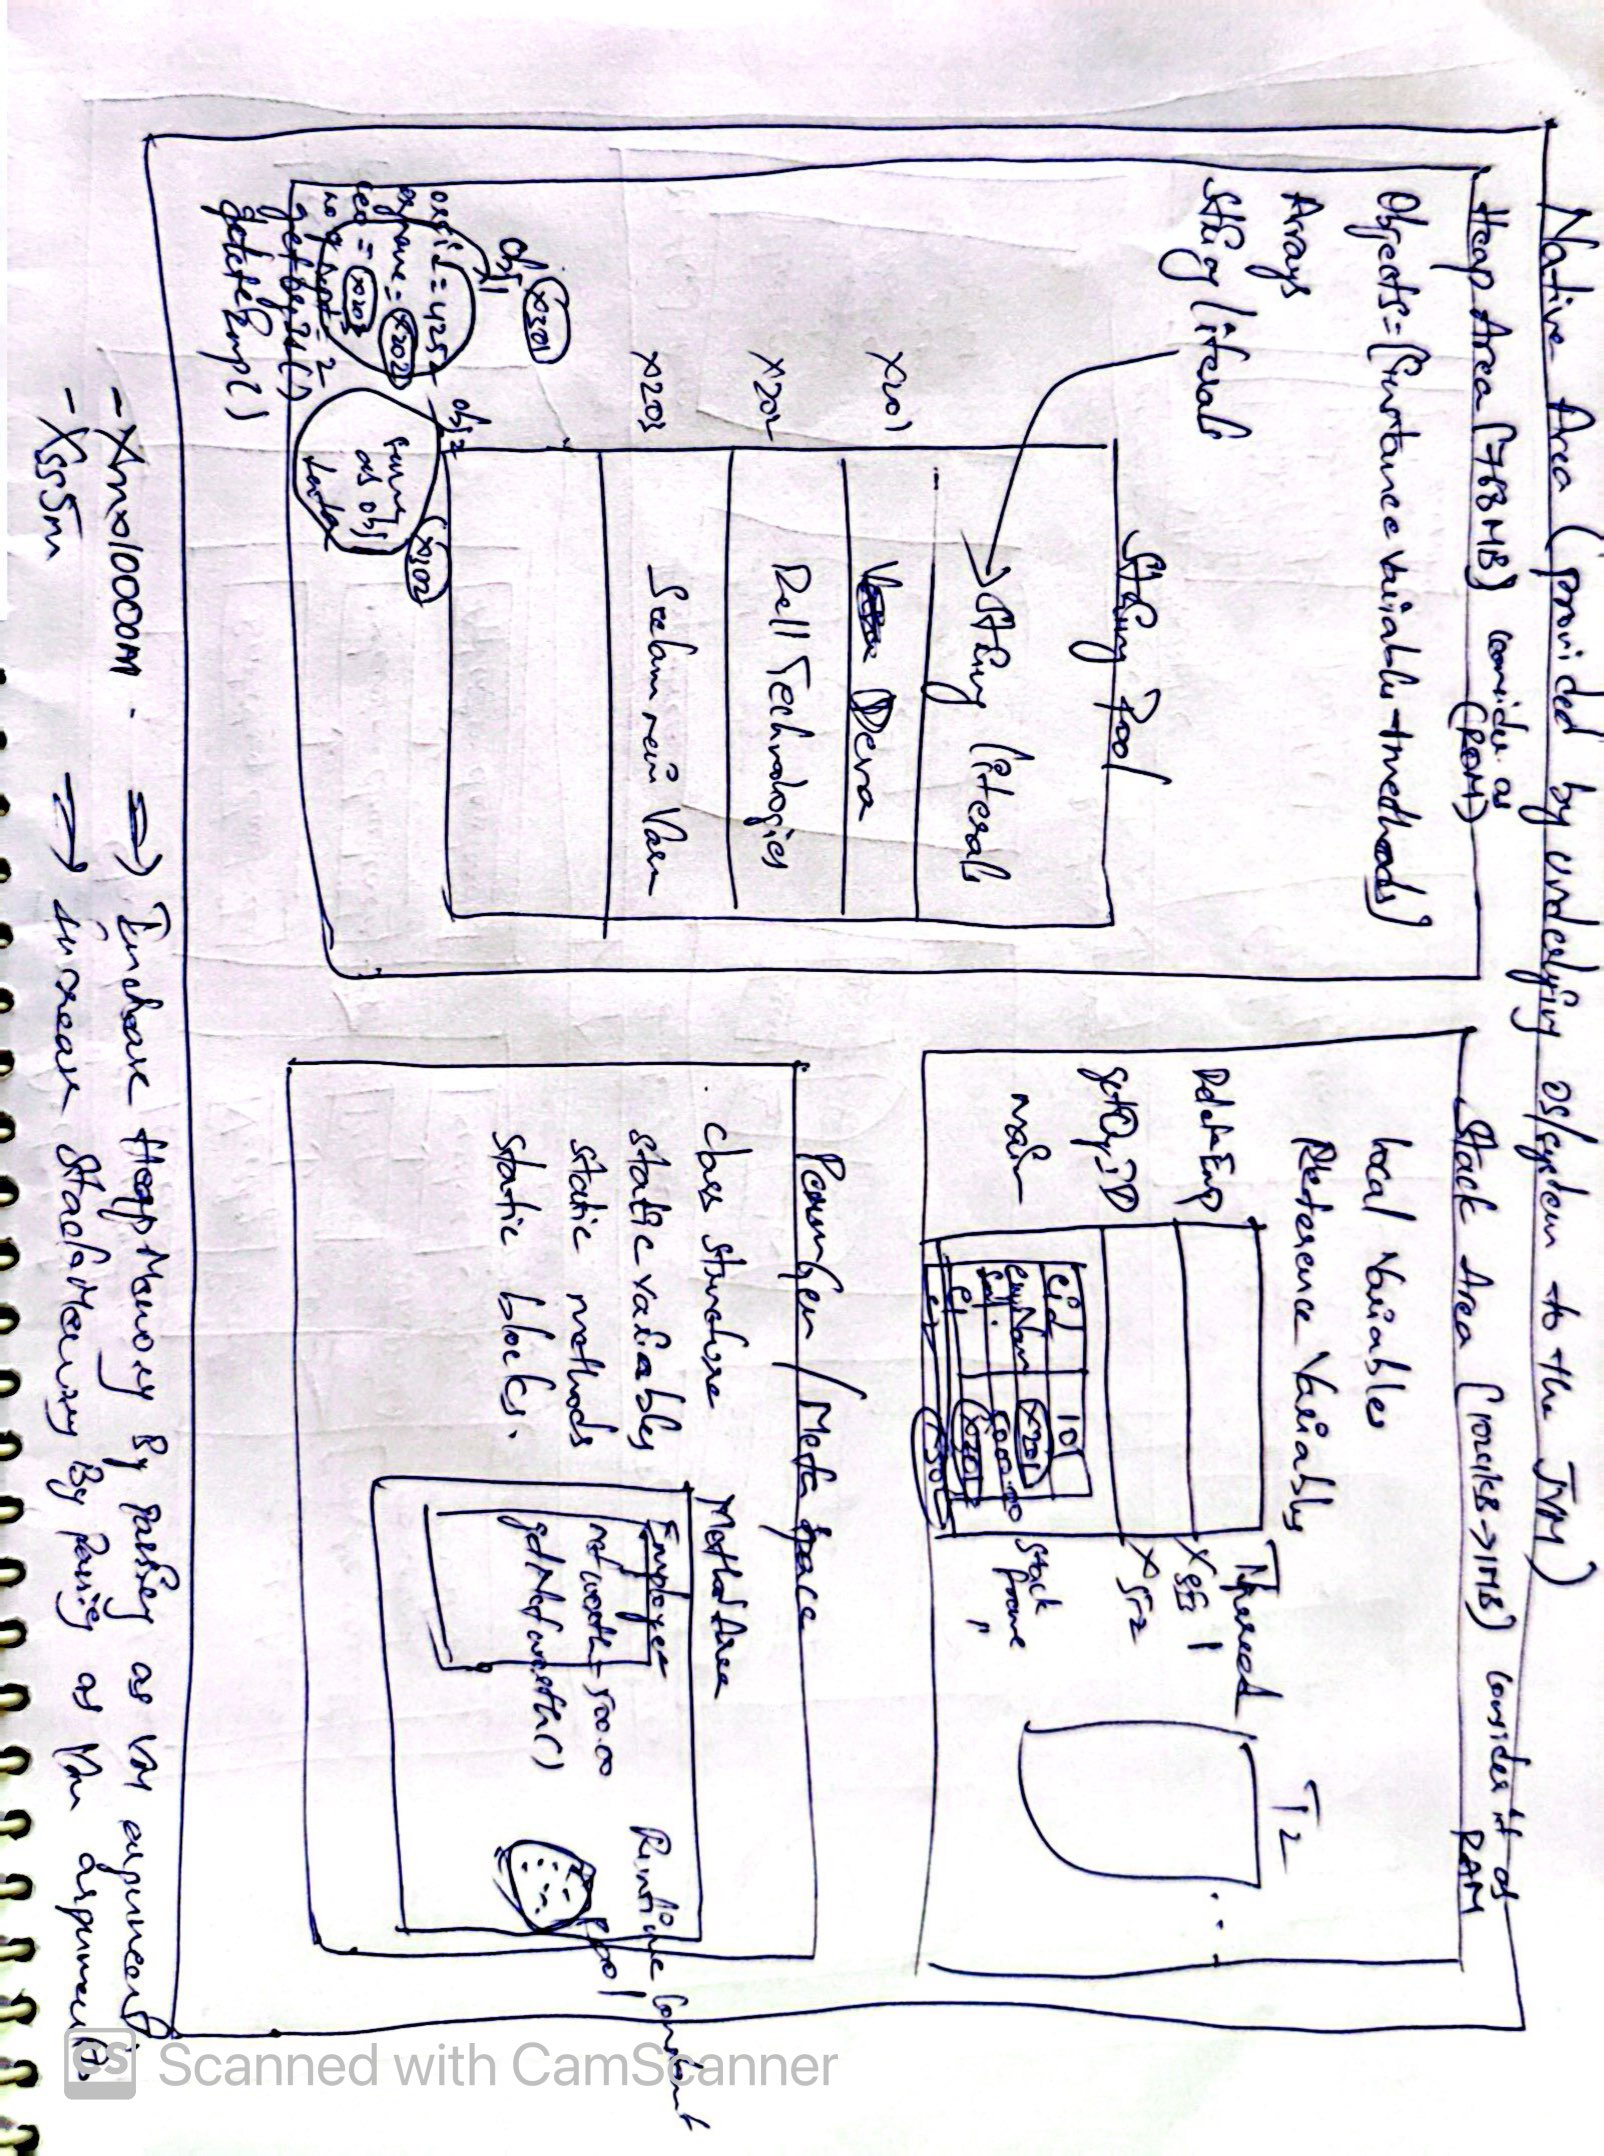 Native Area (provided by underlying os/system to the JVM)
Heap Area [768MB] consider as
(ROM)
Objects=[Instance variable+methods]
Arrays
String literals
String Pool
String literals
x201
Deva
x202
Dell Technologies
x203
x301
obj1
orgid=425
orgname=x202
ceo=x203
no of =2
getOrgId()
deleteEmp()
obj2
x302
same
as obj1
Stack Area [ 1MB] consider it as
RAM
Local Variables
Reference Variables
Thread1
T2
DeleteEmp
getOrgID
main
eid
101
empName
x201
sal.
5000.00
x301
Stack
frame
PermGen/Meta space
class structure
static variables
static methods
static blocks.
Method Area
Employee
networth=500.00
getNetworth()
Runtime Constant
Pool
-Xmx1000M → Increase Heap Memory By passing as VM arguments
-Xss5m → increase Stack Memory By passing as VM arguments
CS Scanned with CamScanner